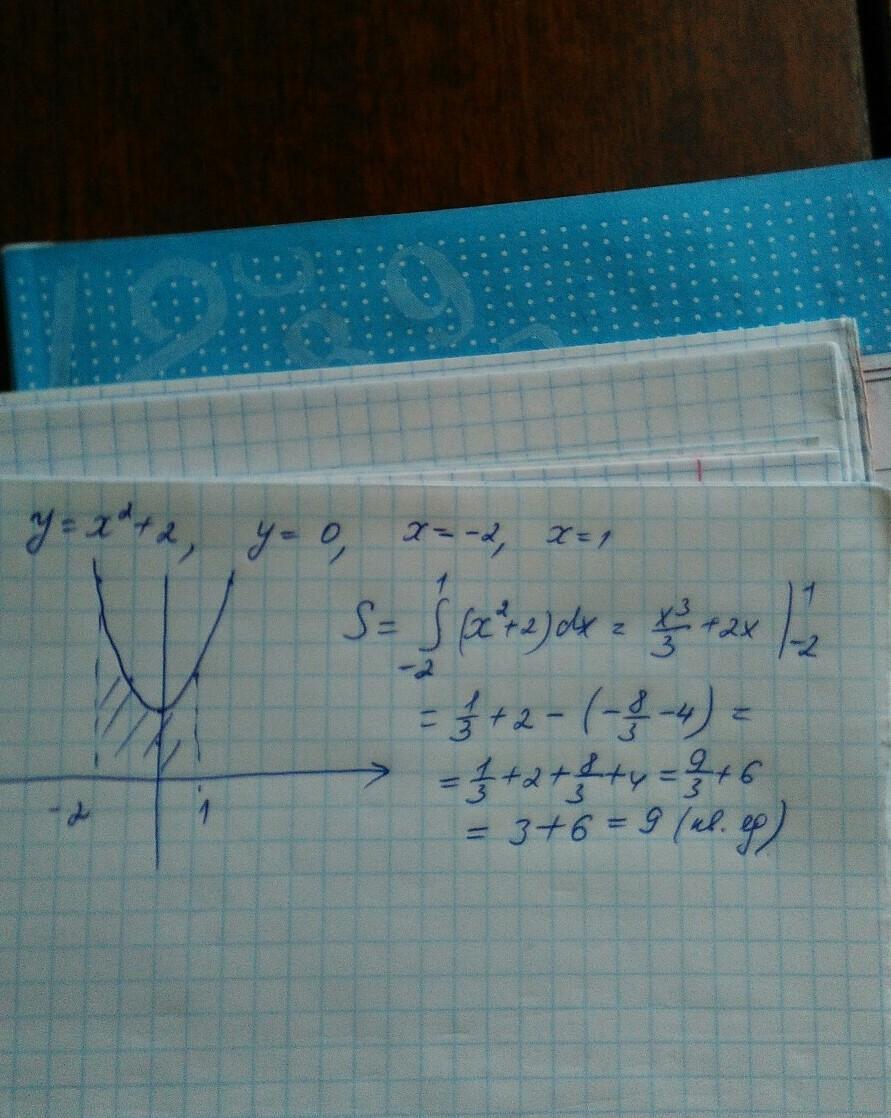 y = x² + 2, y = 0, x = -2, x = 1
S = ∫₋₂¹ (x² + 2) dx = x³/3 + 2x |₋₂¹
= 1/3 + 2 - (-8/3 - 4) =
= 1/3 + 2 + 8/3 + 4 = 9/3 + 6
= 3 + 6 = 9 (кв. ед)
-2 1